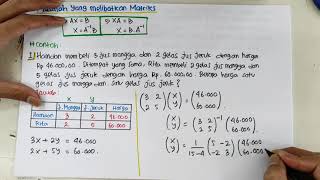 Masalah yang melibatkan Matriks
AX = B
X = A⁻¹ B
XA = B
X = B A⁻¹
Contoh
1. Hamdan membeli 3 jus mangga dan 2 gelas jus jeruk dengan harga
Rp 46.000,00. Ditempat yang sama, Rita membeli 2 jus mangga dan
5 gelas jus jeruk dengan harga Rp. 60.000,00. Berapa harga satu
gelas jus mangga dan satu gelas jus jeruk?
Jawab:
x y Harga
Hamdan 3 2 46.000
Rita 2 5 60.000
3x + 2y = 46.000
2x + 5y = 60.000
(3 2 / 2 5) (x / y) = (46.000 / 60.000)
(x / y) = (3 2 / 2 5)⁻¹ (46.000 / 60.000)
(x / y) = 1/15-4 (5 -2 / -2 3) (46.000 / 60.000